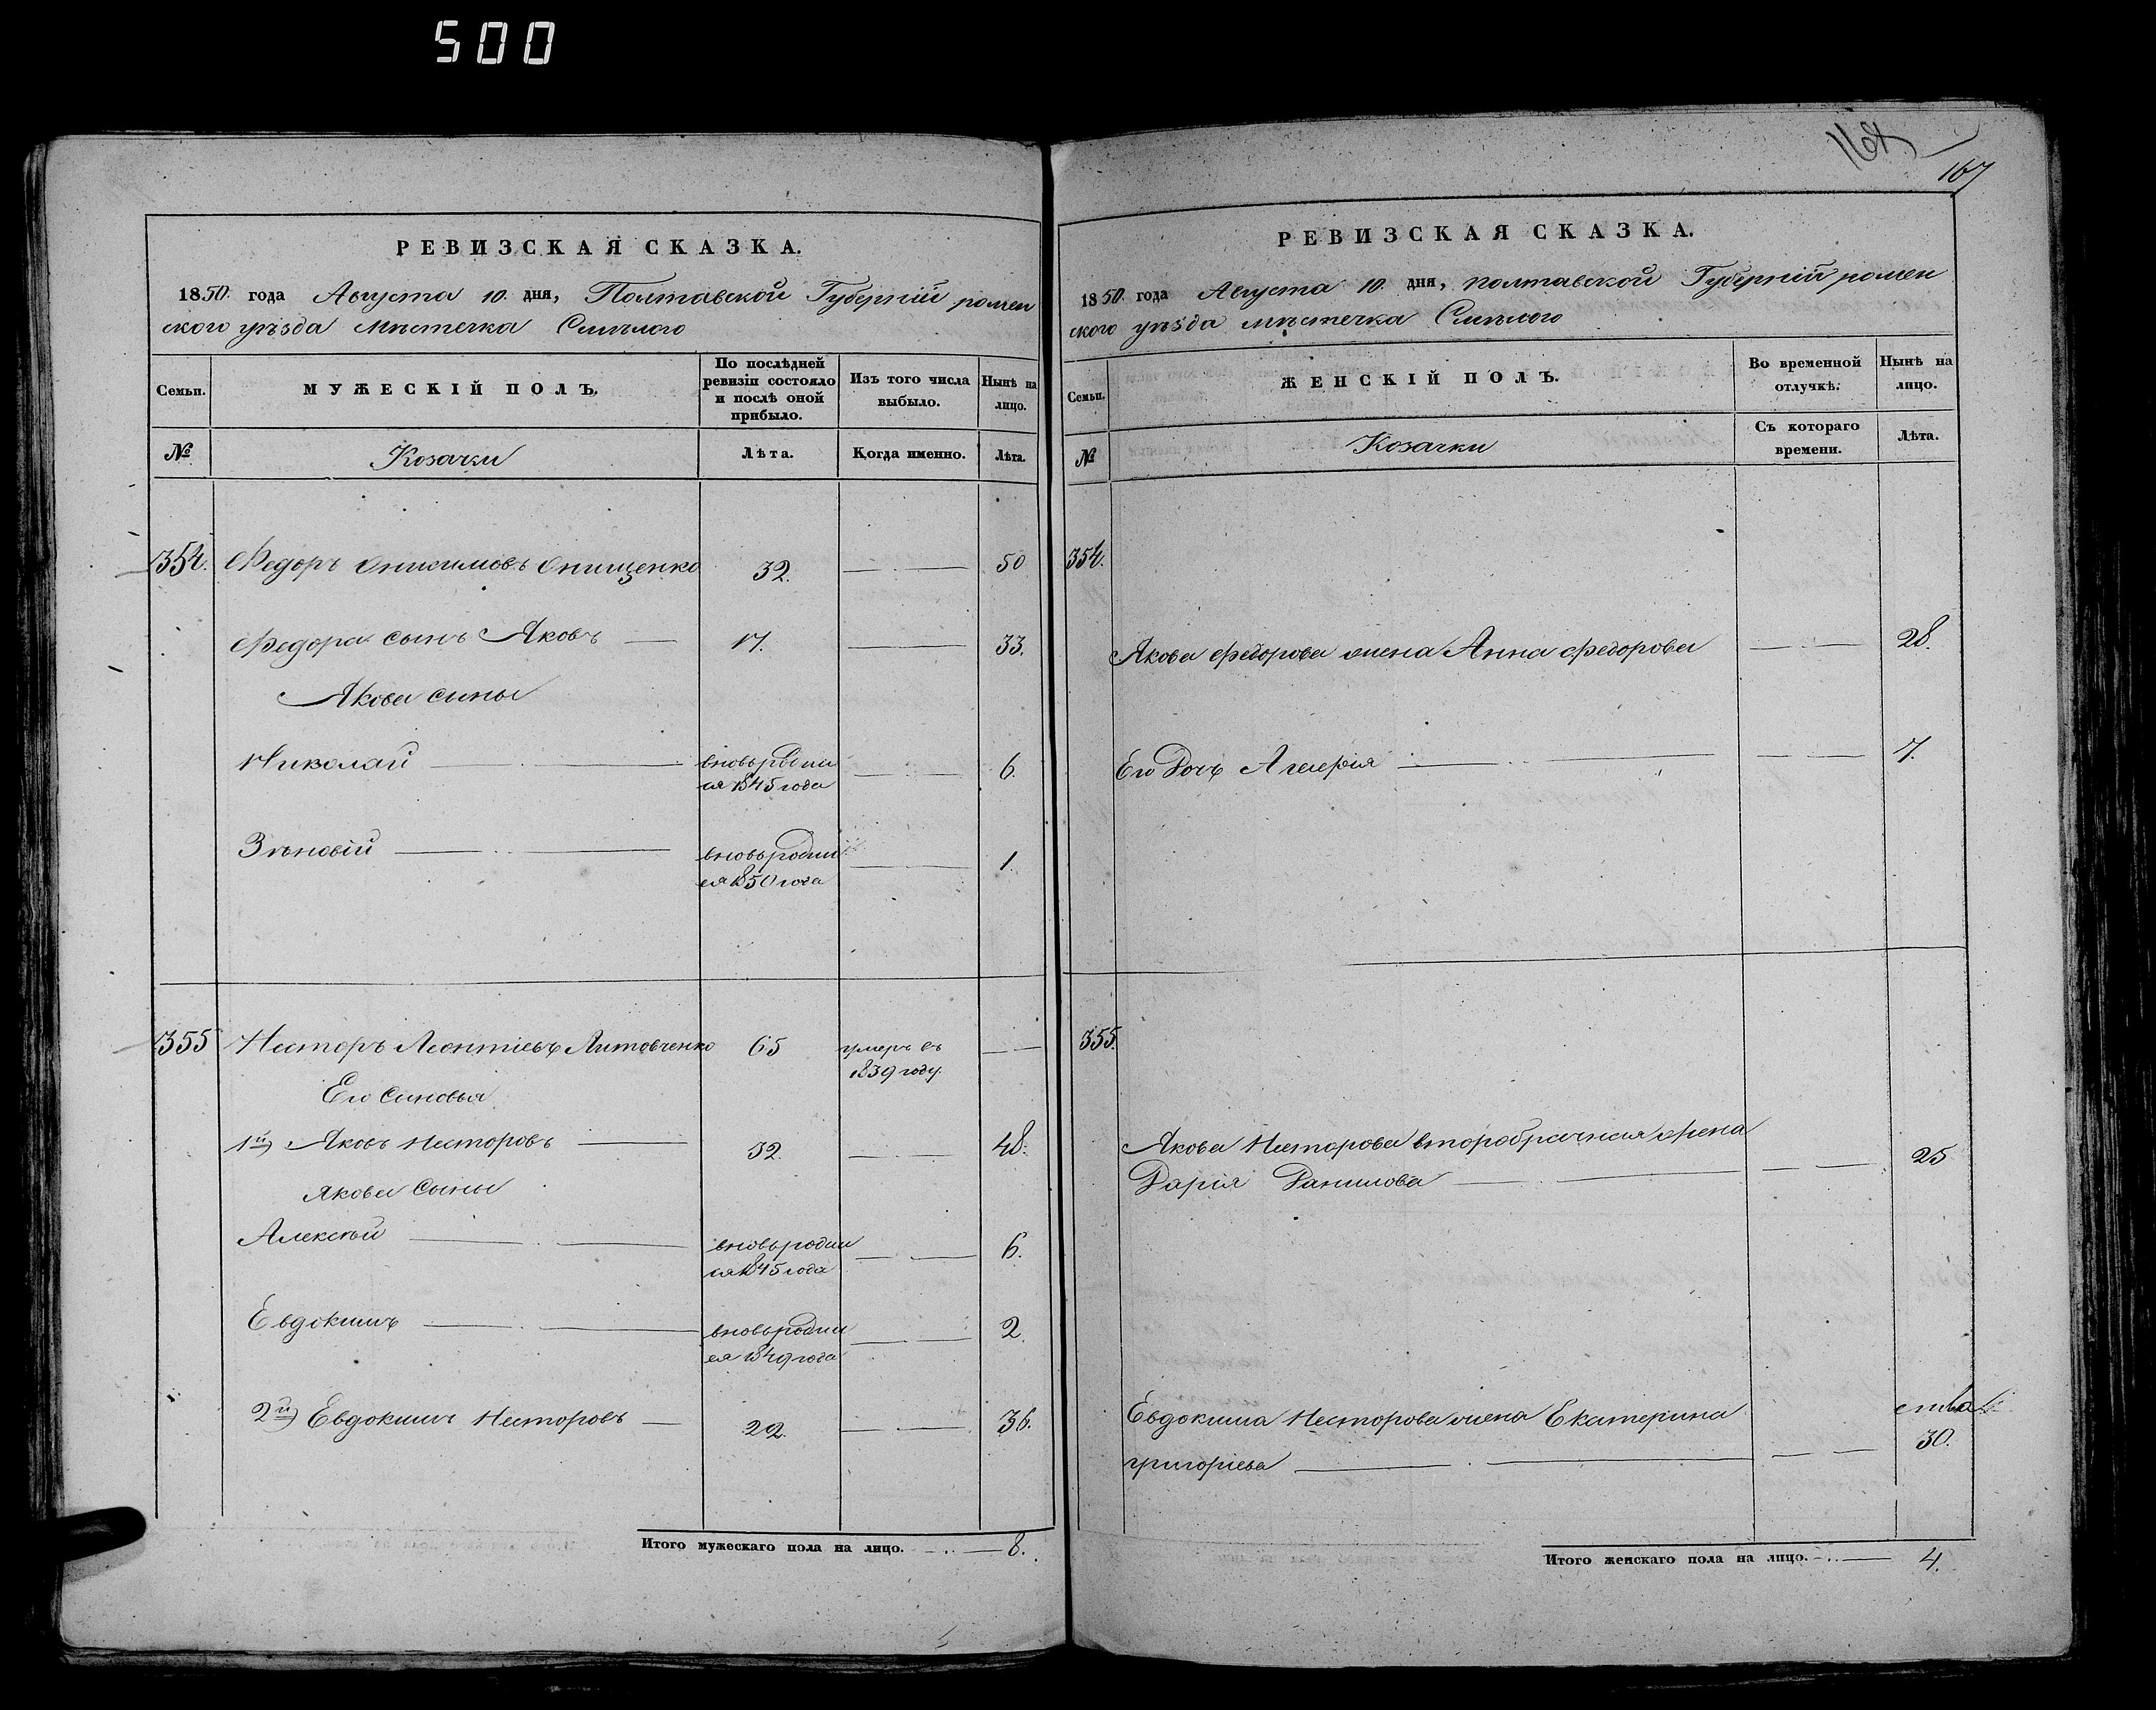 500
167
РЕВИЗСКАЯ СКАЗКА.
1850. года Августа 10. дня, Полтавской Губерніи ромен
ского уѣзда мѣстечка Смѣлого
Семьи.
МУЖЕСКІЙ ПОЛЪ.
По послѣдней ревизіи состояло и послѣ оной прибыло.
Изъ того числа выбыло.
Нынѣ на лицо.
№
Козачки
Лѣта.
Когда именно.
Лѣта.
354. Федоръ Онисимовъ Онищенко 32. 50
Федора сынъ Яковъ 17. 33.
Якова сины
Николай вновьрод 6.
ся 1845 года
Зѣновій вновьродил 1.
ся 1850 года
355 Несторъ Леонтіевъ Литовченко 65 умеръ въ
1839 году.
Его Синовья
1й) Яковъ Несторовъ 32. 48.
якова Сыны
Алексѣй вновьродил 6.
ся 1845 года
Евдокимъ вновьродил 2.
ся 1849 года
2й) Евдокимъ Несторовъ 22. 36.
Итого мужескаго пола на лицо. 8.
РЕВИЗСКАЯ СКАЗКА.
1850 года Августа 10. дня, полтавской Губерніи ромен
ского уѣзда мѣстечка Смѣлого
Семьи.
ЖЕНСКІЙ ПОЛЪ.
Во временной отлучкѣ.
Нынѣ на лицо.
№
Козачки
Съ котораго времени.
Лѣта.
354.
Якова Федорова жена Анна Федорова 28.
Его Дочь 7.
355.
Якова Несторова второбрачная жена
Дарія Данилова 25
Евдокима Несторова жена Екатерина
григоріева 30.
Итого женскаго пола на лицо. 4.